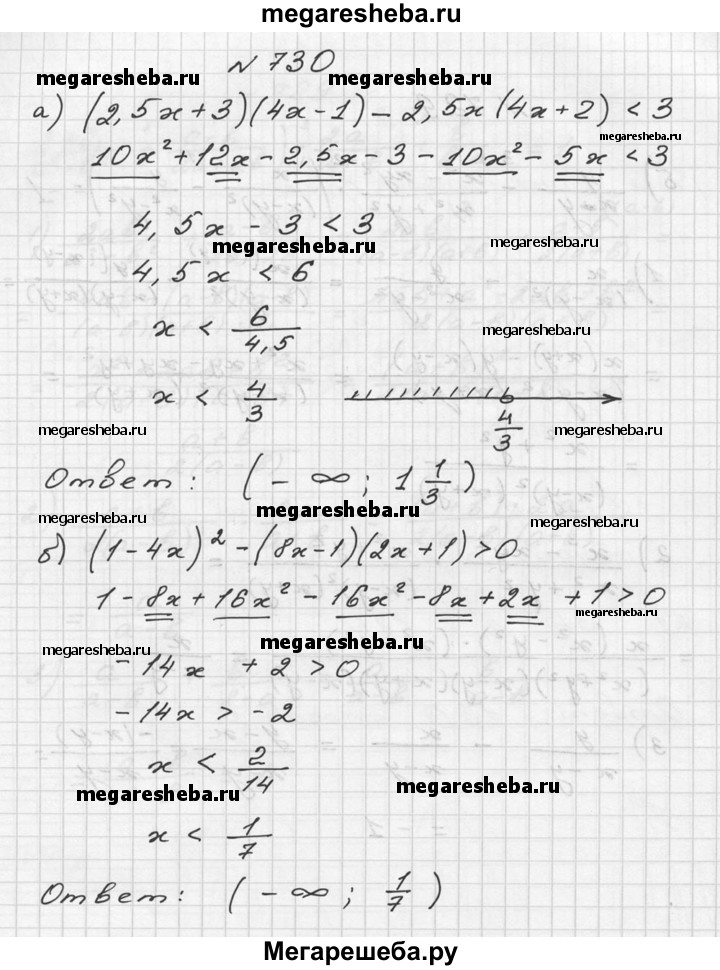 megaresheba.ru
№ 730
megaresheba.ru megaresheba.ru
а) (2,5x+3)(4x-1)-2,5x(4x+2) < 3
megaresheba.ru
10x²+12x-2,5x-3-10x²-5x < 3
4,5x - 3 < 3
megaresheba.ru megaresheba.ru
4,5x < 6
x < 6/4,5
megaresheba.ru
x < 4/3
4/3
megaresheba.ru megaresheba.ru
Ответ: (-∞; 1 1/3)
megaresheba.ru
megaresheba.ru megaresheba.ru
б) (1-4x)²-(8x-1)(2x+1)>0
1-8x+16x²-16x²-8x+2x+1>0
megaresheba.ru
megaresheba.ru
megaresheba.ru
-14x +2>0
-14x > -2
x < 2/14
megaresheba.ru megaresheba.ru
x < 1/7
Ответ: (-∞; 1/7)
Мегарешеба.ру